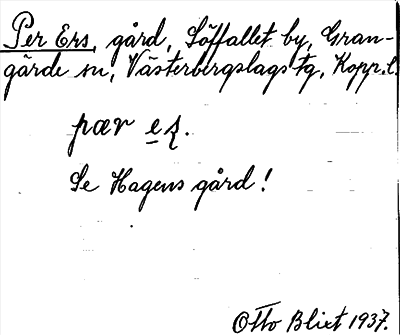 Per Ers, gård, Löffallet by, Gran-
gärde sn, Västerbergslags tg, Kopp. l.
pær
Se Hagens gård!
Otto Blixt 1937.